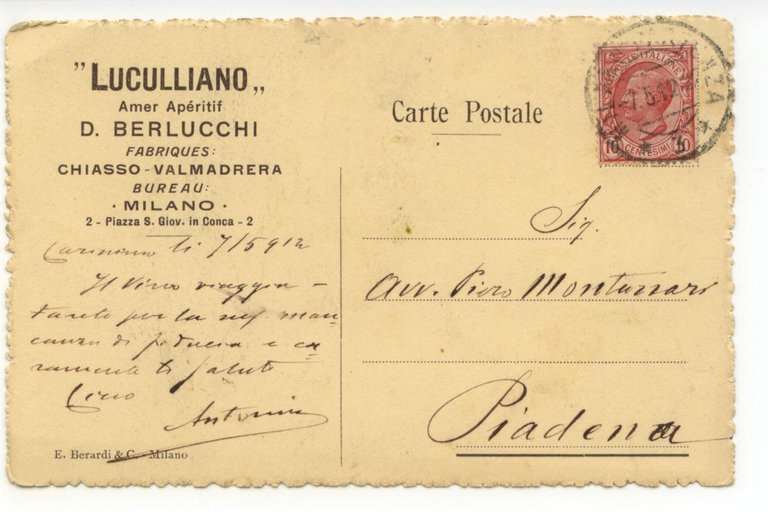 "LUCULLIANO„
Amer Apéritif
D. BERLUCCHI
FABRIQUES:
CHIASSO - VALMADRERA
BUREAU:
· MILANO ·
2 - Piazza S. Giov. in Conca - 2
li 7/5 912
Il
per la
canza di fiducia e ca-
ramente ti saluto
Antonini
E. Berardi & C. - Milano
Carte Postale
POSTE ITALIANE
10 CENTESIMI 10
Sig.
Avv. Piero Montanari
Piadena